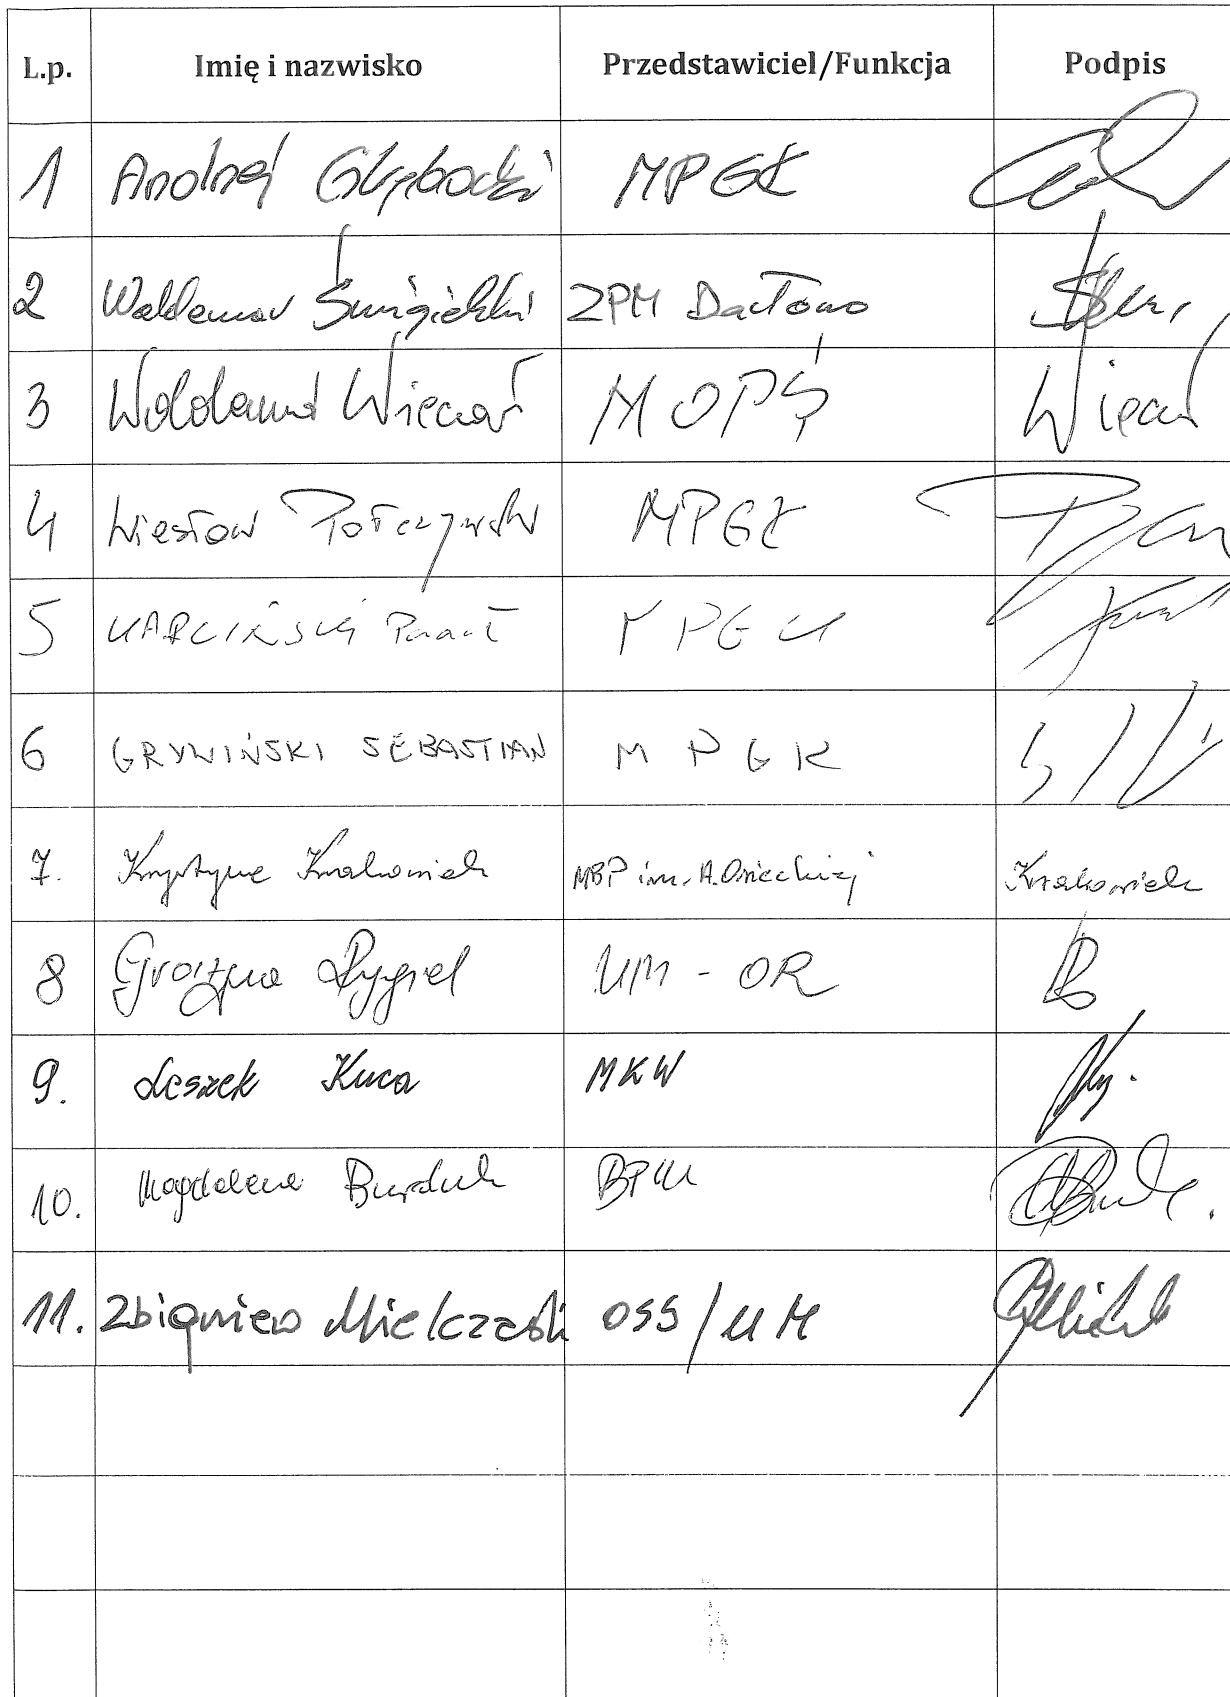 L.p. Imię i nazwisko Przedstawiciel/Funkcja Podpis
1 Andrzej Głębocki MPGK
2 Waldemar Śmigielski ZPM Darłowo
3 Waldemar Więcas MOPS Więcas
4 Wiesław MPGK
5 Paweł MPGK
6 GRYWIŃSKI SEBASTIAN MPGK
7. Krystyna Krakowiak MBP im. A. Osieckiej Krakowiak
8 Grażyna Rygiel UM - OR
9. Leszek Kuca MKW
10. Magdalena Burduk BPM
11. Zbigniew Mielczarski OSS/UM